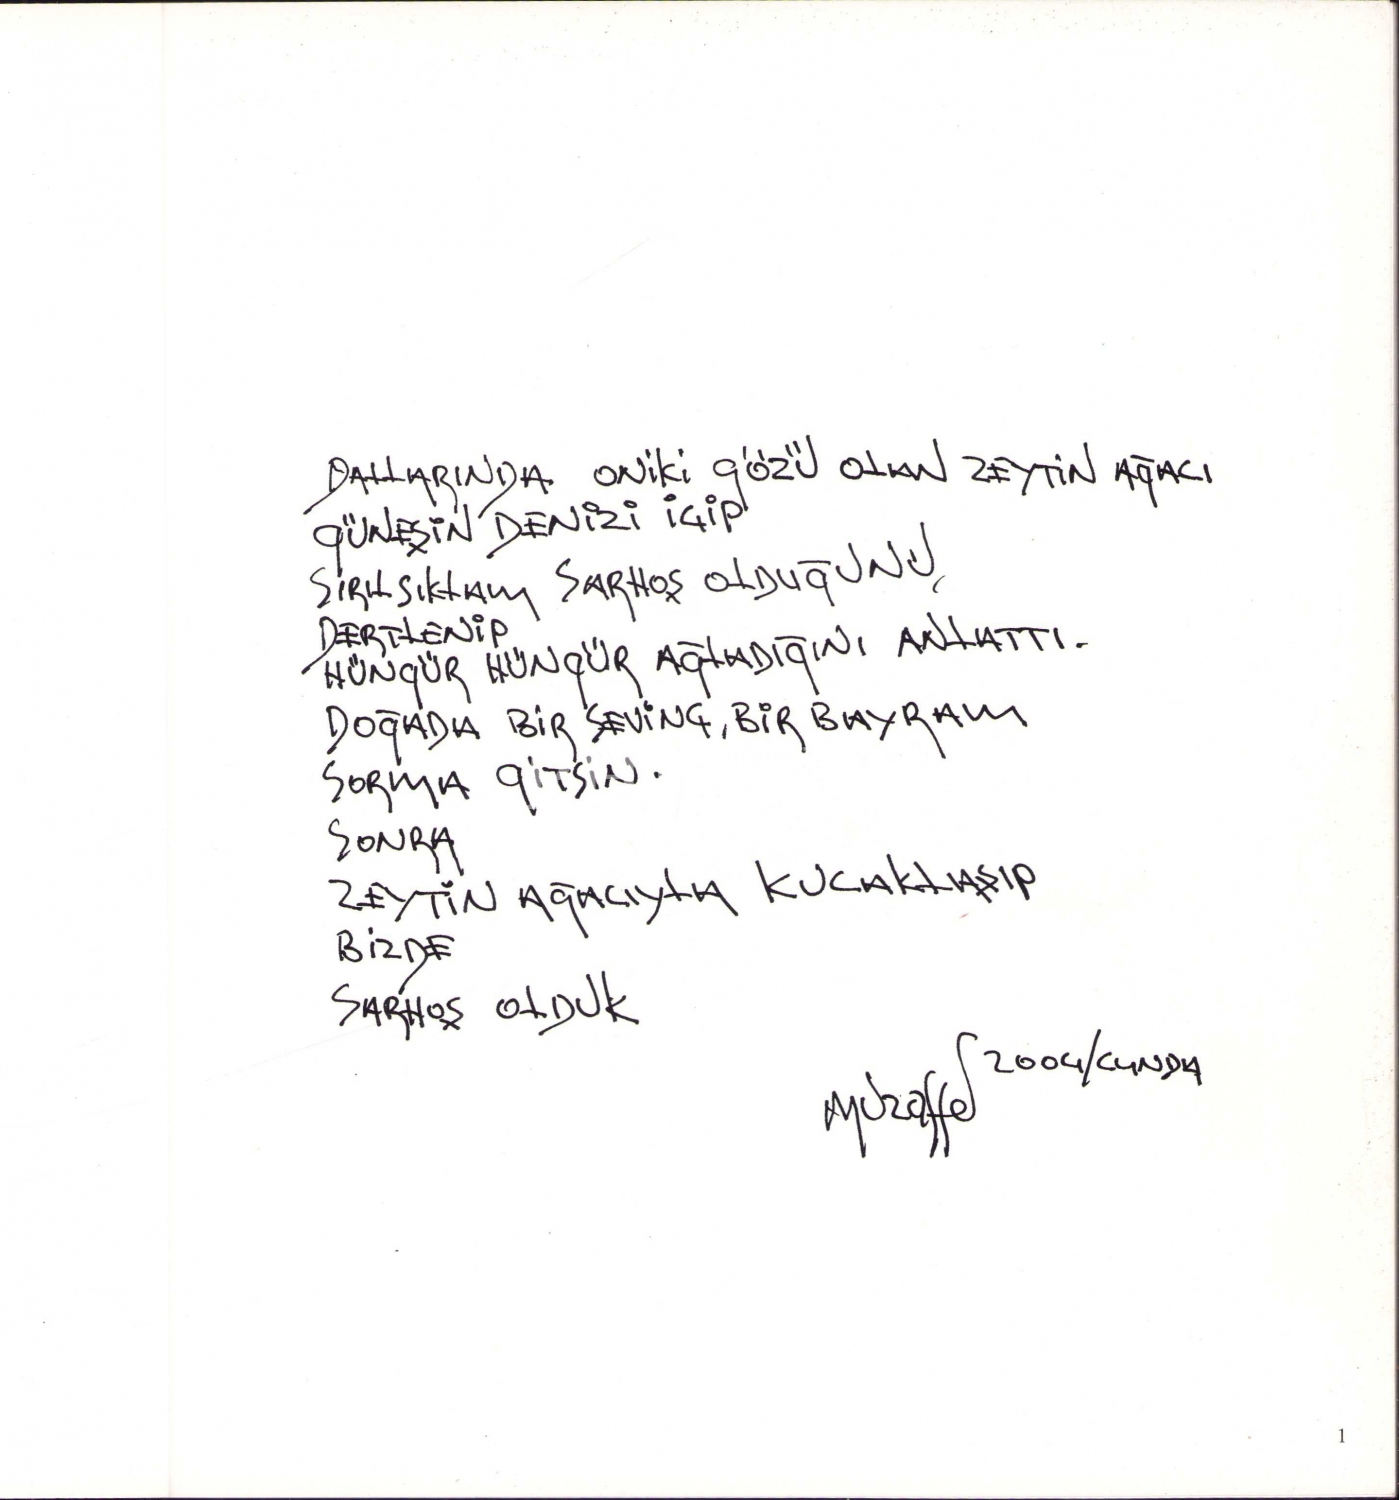 DALLARINDA ONİKİ GÖZÜ OLAN ZEYTİN AĞACI
GÜNEŞİN DENİZİ İÇİP
SIRILSIKLAM SARHOŞ OLDUĞUNU,
DERTLENİP
HÜNGÜR HÜNGÜR AĞLADIĞINI ANLATTI.
DOĞADA BİR SEVİNÇ, BİR BAYRAM
SORMA GİTSİN.
SONRA
ZEYTİN AĞACIYLA KUCAKLAŞIP
BİZDE
SARHOŞ OLDUK
Muzaffer 2004/CUNDA
1